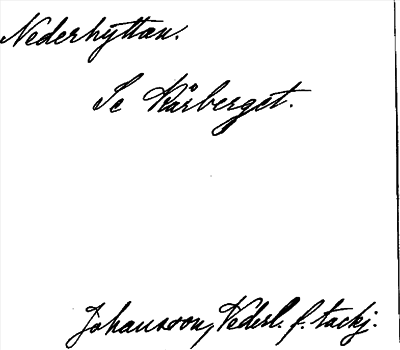 Nederhyttan.
Se Kårberget.
Johansson, Nederl. f. tackj.